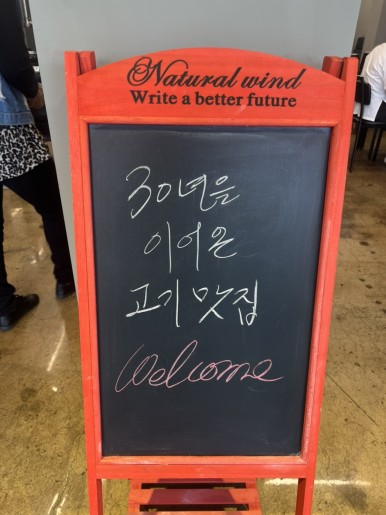 Natural wind
Write a better future
30년을
이어온
고기맛집
Welcome